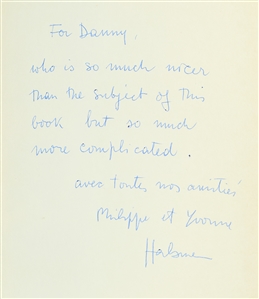 For Danny,
who is so much nicer
than the subject of this
book but so much
more complicated.
avec toutes nos amitiés
Philippe et Yvonne
Halsman